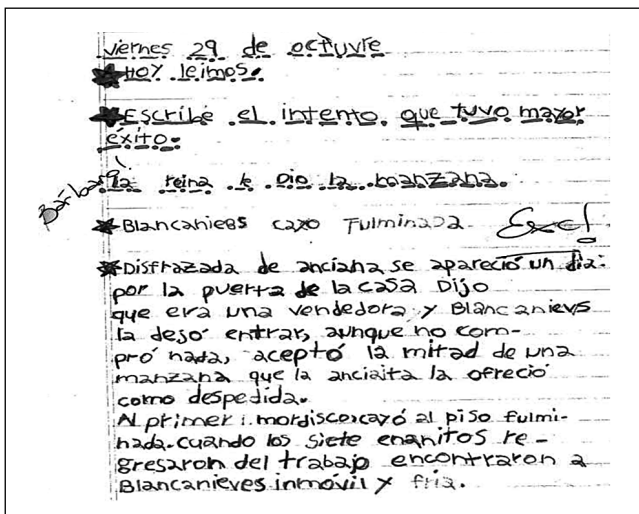 viernes 29 de octuvre
★ HOY leimos.
★ Escribe el intento que tuvo mayor
éxito.
Bárbara
la reina le Dio la manzana.
★ Blancanieves cayo Fulminada. Exc!
★ Disfrazada de anciana se apareció un día
por la puerta de la casa Dijo
que era una vendedora y Blancanievs
la desó entrar, aunque no com-
pró nada, aceptó la mitad de una
manzana que la anciaita la ofreció
como despedida.
Al primer mordisco cayó al piso fulmi-
nada. cuando los siete enanitos re-
gresaron del trabajo encontraron a
Blancanieves inmóvil y fria.